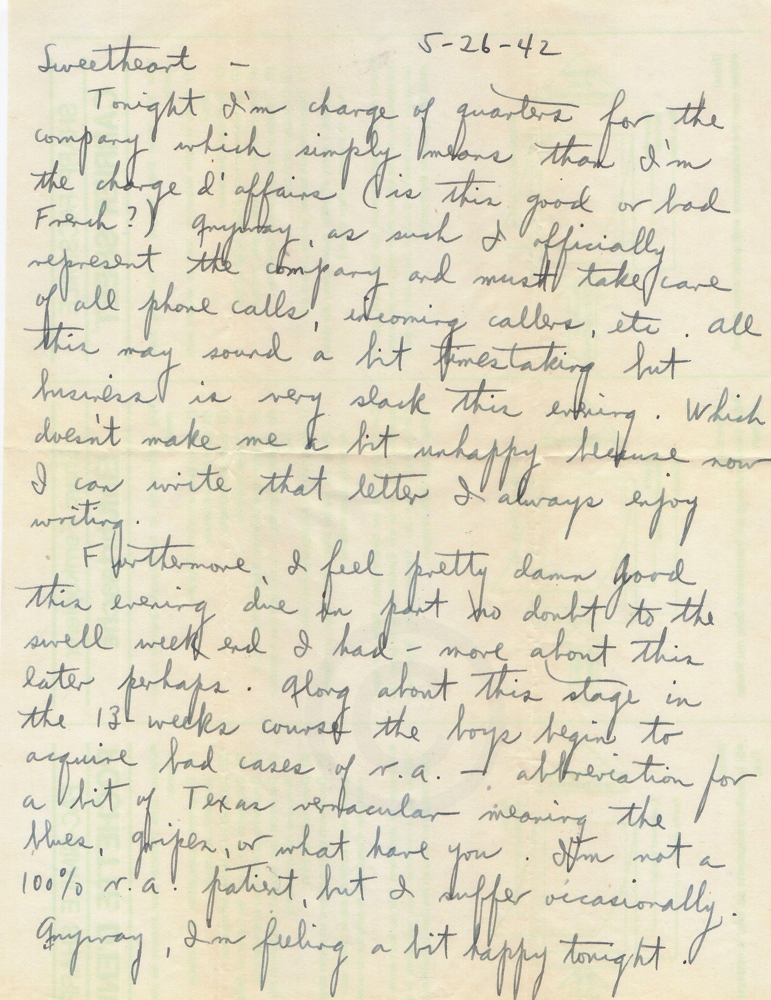 5-26-42
Sweetheart -
Tonight I'm charge of quarters for the
company which simply means than I'm
the charge d'affairs (is this good or bad
French?) Anyway, as such I officially
represent the company and must take care
of all phone calls, incoming callers, etc. All
this may sound a bit timestaking but
business is very slack this evening. Which
doesn't make me a bit unhappy because now
I can write that letter I always enjoy
writing.
Furthermore, I feel pretty damn good
this evening due in part no doubt to the
swell week end I had - more about this
later perhaps. Along about this stage in
the 13-weeks course the boys begin to
acquire bad cases of r.a. - abbreviation for
a bit of Texas vernacular meaning the
blues, gripes, or what have you. I'm not a
100% r.a. patient, but I suffer occasionally.
Anyway, I'm feeling a bit happy tonight.